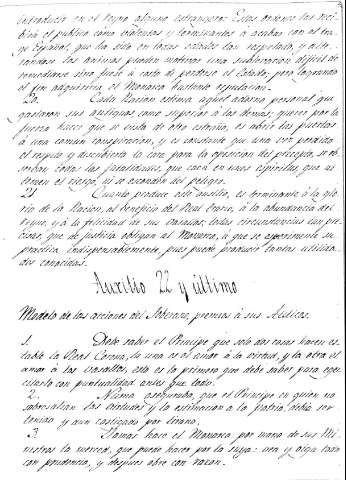 introducir en el Reyno alguno estrangero: Estas ordenes las reci
birá el publico como violentas y terminantes á acabar con el tra
ge Español, que ha sido en todas edades tan respetado, y alte
randose los animos pueden moverse una sublevacion dificil de
remediarse sino fuese á costa de perderse el Estado; pero logrando
el fin adquirirá el Monarca bastante reputacion.
20. Cada Nacion estima aquel adorno personal que
gastaron sus antiguos como superior á los demas; querer por la
fuerza hacer que se vista de otro extraño, es abrir las puertas
á una comun conspiracion, y es constante que una vez perdido
el respeto y descubierta la cara para la oposicion del precepto, se
todas las fatalidades, que caen en unos espiritus, que ni
temen el riesgo, ni se esconden del peligro.
21. Quanto produce este auxilio, es terminante á la glo
ria de la Nacion, al beneficio del Real Erario, á la abundancia del
Reyno, y á la felicidad de sus vasallos; todas circunstancias tan pre
cisas, que de justicia obligan al Monarca, á que se experimente su
practica indispensablemente, pues puede producir tantas utilida
des conocidas.
Auxilio 22 y último
Modelo de las acciones del Soberano, premios á sus
1. Debe saber el Principe que solo dos cosas hacen es
table la Real Corona, la una es el amor á la virtud, y la otra el
amor á los vasallos, esto es lo primero que debe saber para eje
cutarlo con puntualidad antes que todo.
2. Numa aseguraba, que el Principe en quien no
sobresalian las virtudes y la estimacion á la patria, debia ser
tenido y aun castigado por tirano.
3. Jamas hace el Monarca por mano de sus Mi
nistros la merced, que puede hacer por la suya: vea y oiga todo
con prudencia, y despues obre con razon.